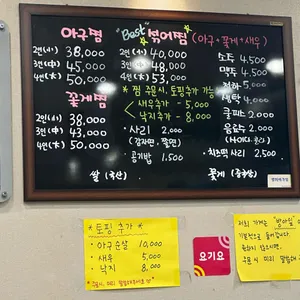 아구찜
2인(小) 38,000
3인(中) 45,000
4인(大) 50,000
꽃게찜
2인(小) 38,000
3인(中) 43,000
4인(大) 50,000
쌀 (국산)
"Best" 섞어찜 (아구+꽃게+새우)
2인(小) 40,000
3인(中) 48,000
4인(大) 53,000
* 찜 주문시, 토핑추가 가능
새우추가 - 5,000
낙지추가 - 8,000
사리 2,000
(감자면, 쫄면)
공기밥 1,500
소주 4,500
맥주 4,500
청하 5,000
4,000
쿨피스 2,000
음료수 2,000
치즈떡 사리 2,500
꽃게 (중국산)
* 토핑 추가 *
아구순살 10,000
새우 5,000
낙지 8,000
요기요
저희 가게는